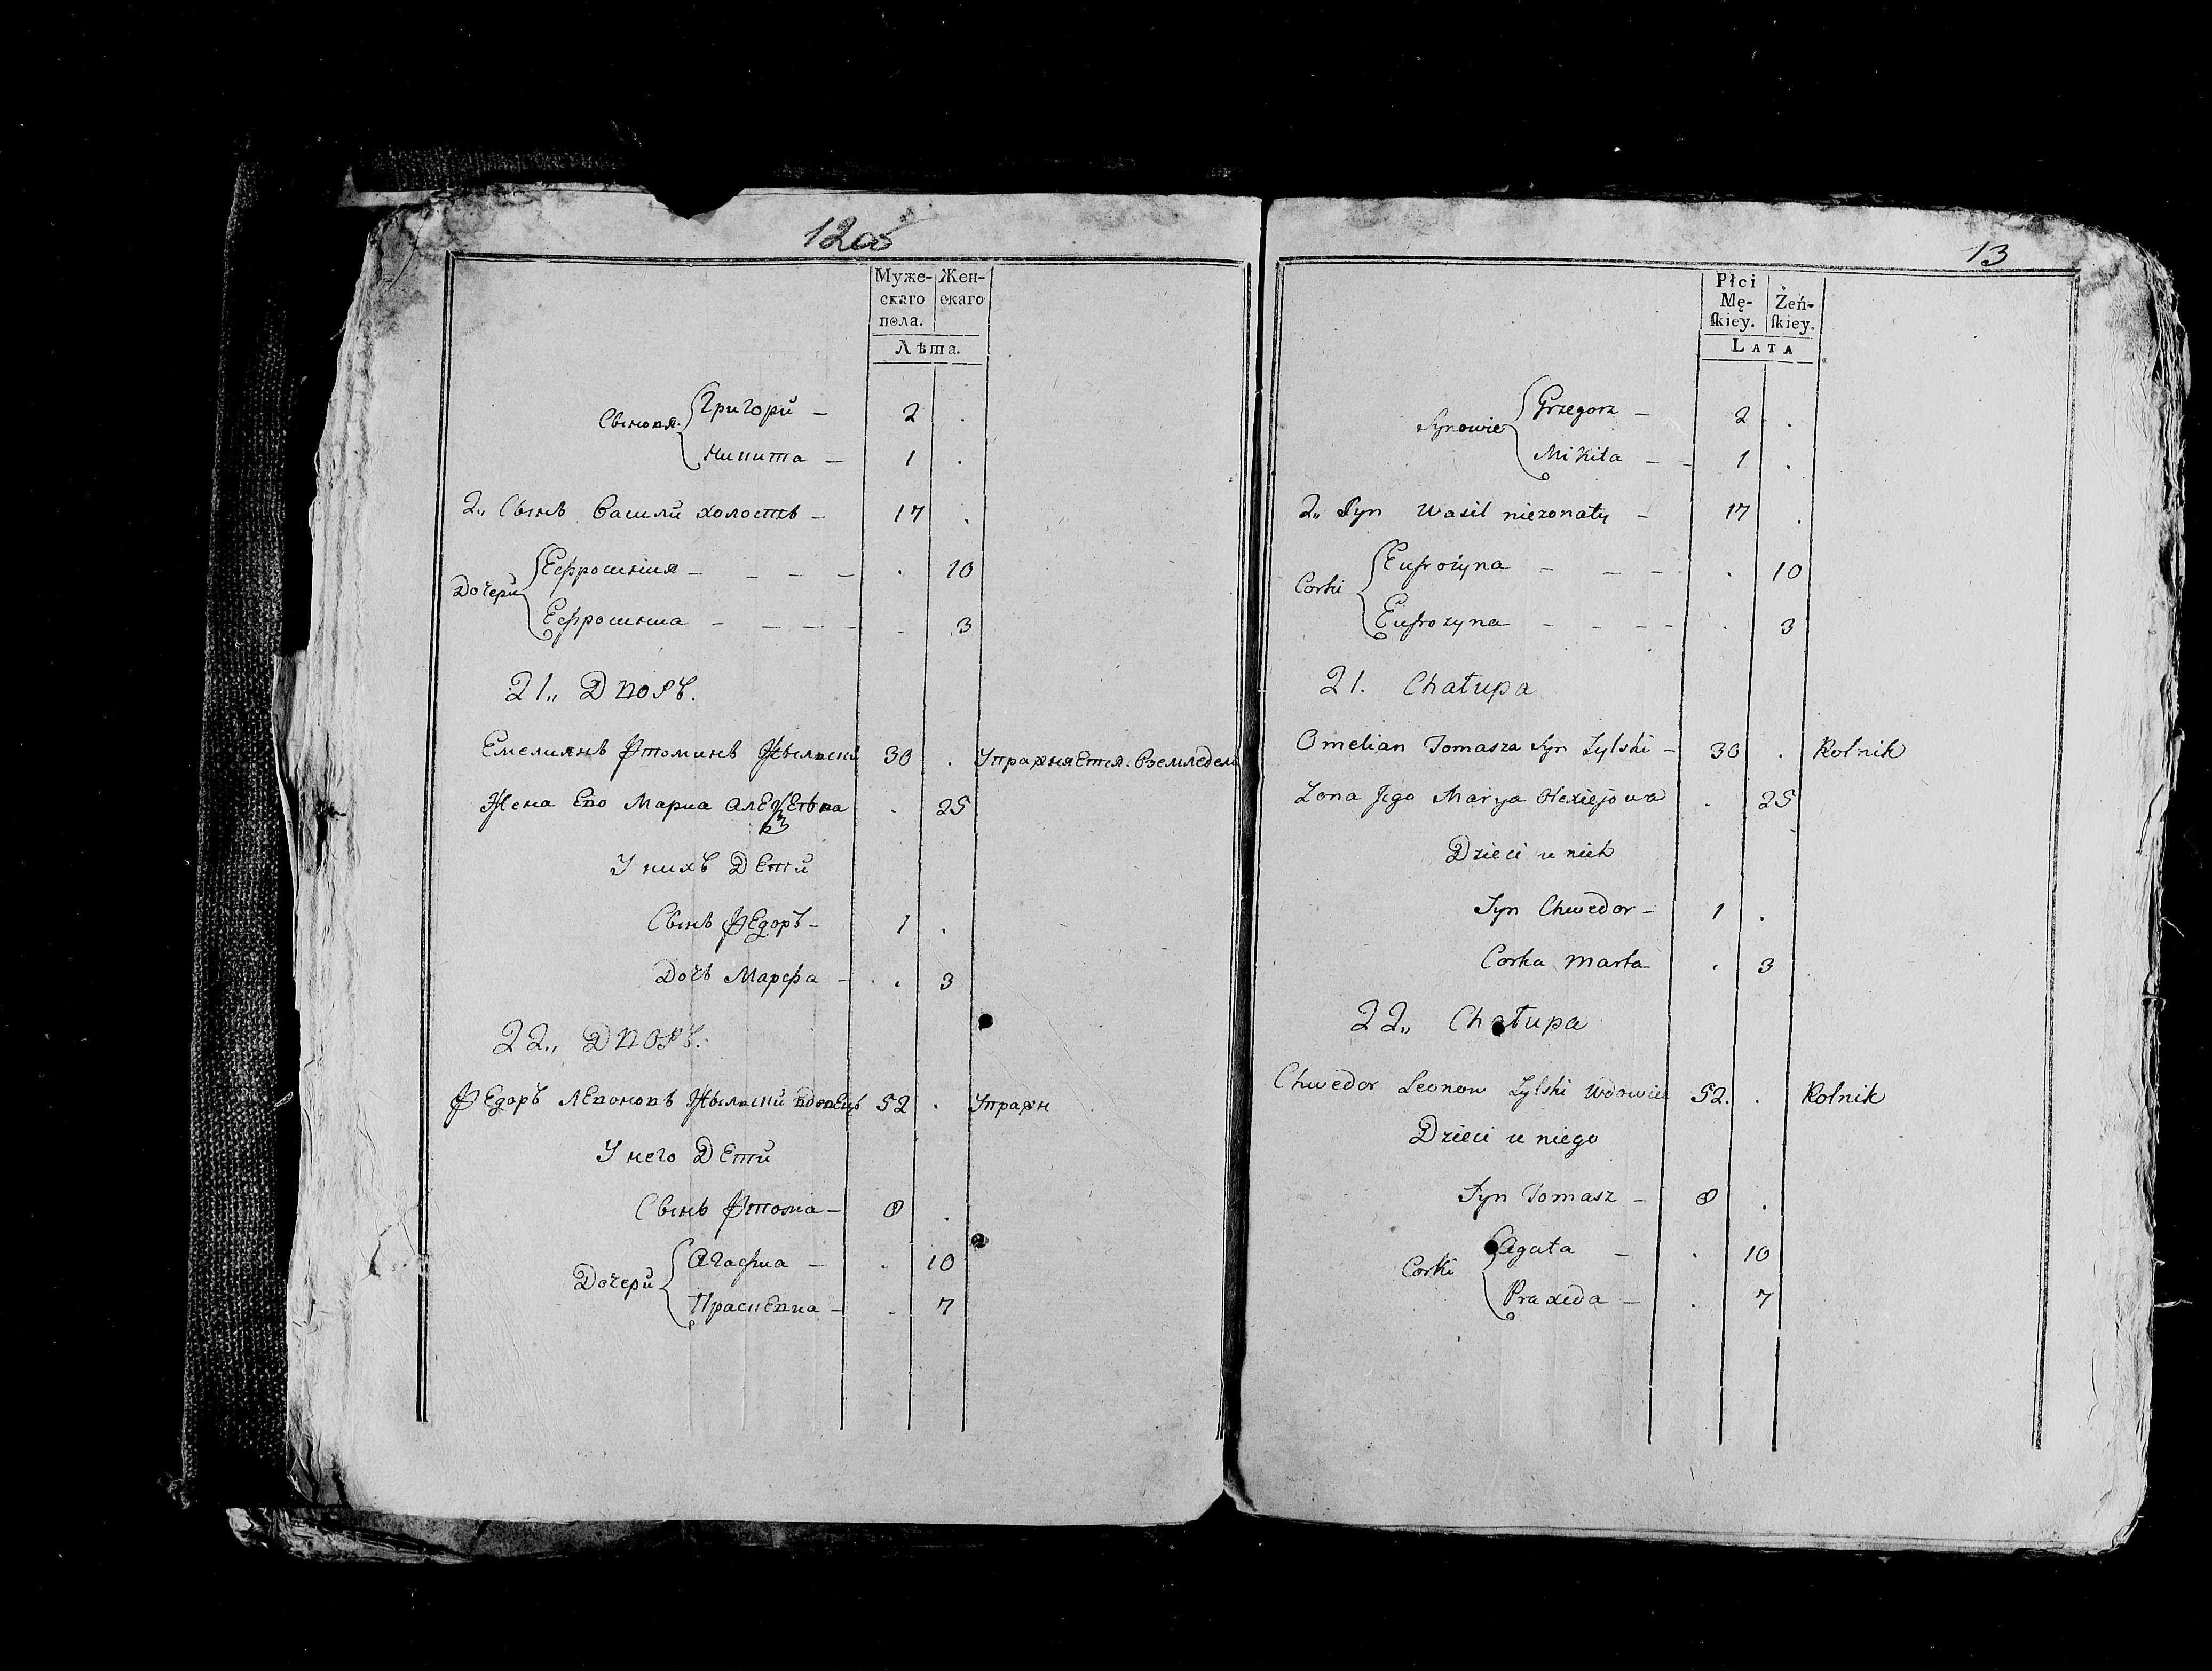 12об
Муже- Жен-
скаго скаго
пола.
Лѣта.
Сынов я Григори — 2 .
Никита — 1 .
2„ Сынъ Васили холостъ — 17 .
Дочери Ефросиния — — — — . 10
Ефросиниа — — — — . 3
21„ Дворъ.
Емелиянъ Фтоминъ Жылъски 30 . Упражняется. Вземледели
Жена Ево Мариа Алексеева . 25
У нихъ Дети
Сынъ Федоръ — 1 .
Дочь Марфа — . 3
22„ Дворъ.
Федоръ Левоновъ Жылъски вдовецъ 52 . Упражн
У него Дети
Сынъ Фтома — 8 .
Дочери Агафиа — . 10
Прасковиа — . 7
13
Płci
Mę- Żeń-
skiey. skiey.
LATA
Synowie Grzegorz — 2 .
Mikita — — 1 .
2„ Syn Wasil niezonaty — 17 .
Corki Eufrozyna — — — . 10
Eufrozyna — — — — . 3
21. Chałupa
Omelian Tomasza Syn Zylski — 30 . Rolnik
Zona Jego Marya Olexiejowa . 25
Dzieci u nich
Syn Chwedor — 1 .
Corka Marta . 3
22„ Chałupa
Chwedor Leonow Zylski Wdowiec 52. . Rolnik
Dzieci u niego
Syn Tomasz — 8 .
Corki Agata — . 10
Praxeda — . 7